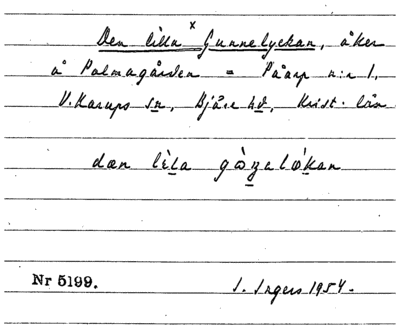 Den lilla ˣGunnelyckan, åker
å Palmagården = Påarp n:r 1,
V. Karups sn, Bjäre hd, Krist. län
dæn lìla gònalókan
Nr 5199.
I. Ingers 1954.